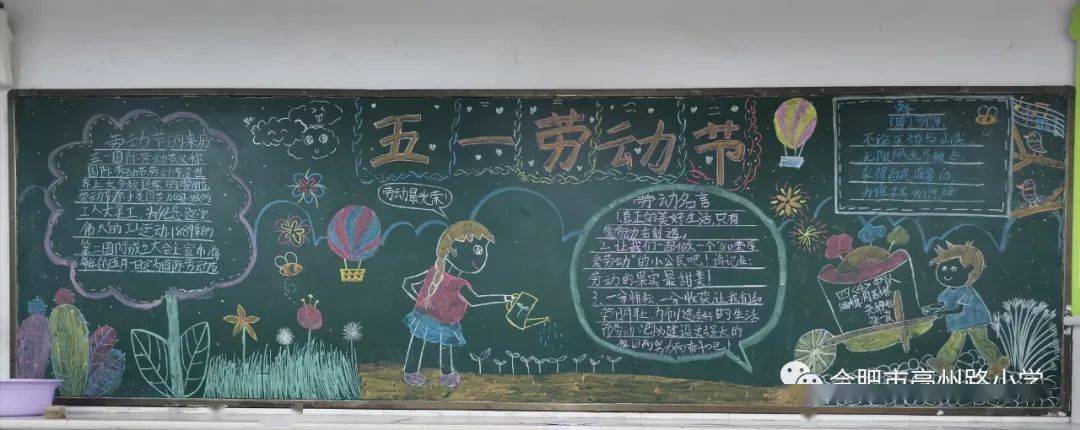 五一劳动节
劳动节的来历
五一国际劳动节又称
国际劳动节、劳动节是世
界上大多数国家的劳动节。
工人大罢工,为纪念这次
伟大的工人运动,1889年的
第二国际成立大会上宣布将
每年的五月一日定为国际劳动节
劳动最光荣!
劳动名言
1.真正的美好生活只有
靠劳动去创造。
2.让我们一起做一个"知荣辱
爱劳动"的小公民吧!请记住:
劳动的果实最甜美!
3.一分耕耘,一分收获,让我们
祖国而努力而奋斗吧!
蜂
不论平地与山尖
无限风光尽被占
采得百花成蜜后
为谁辛苦为谁甜
合肥市亳州路小学